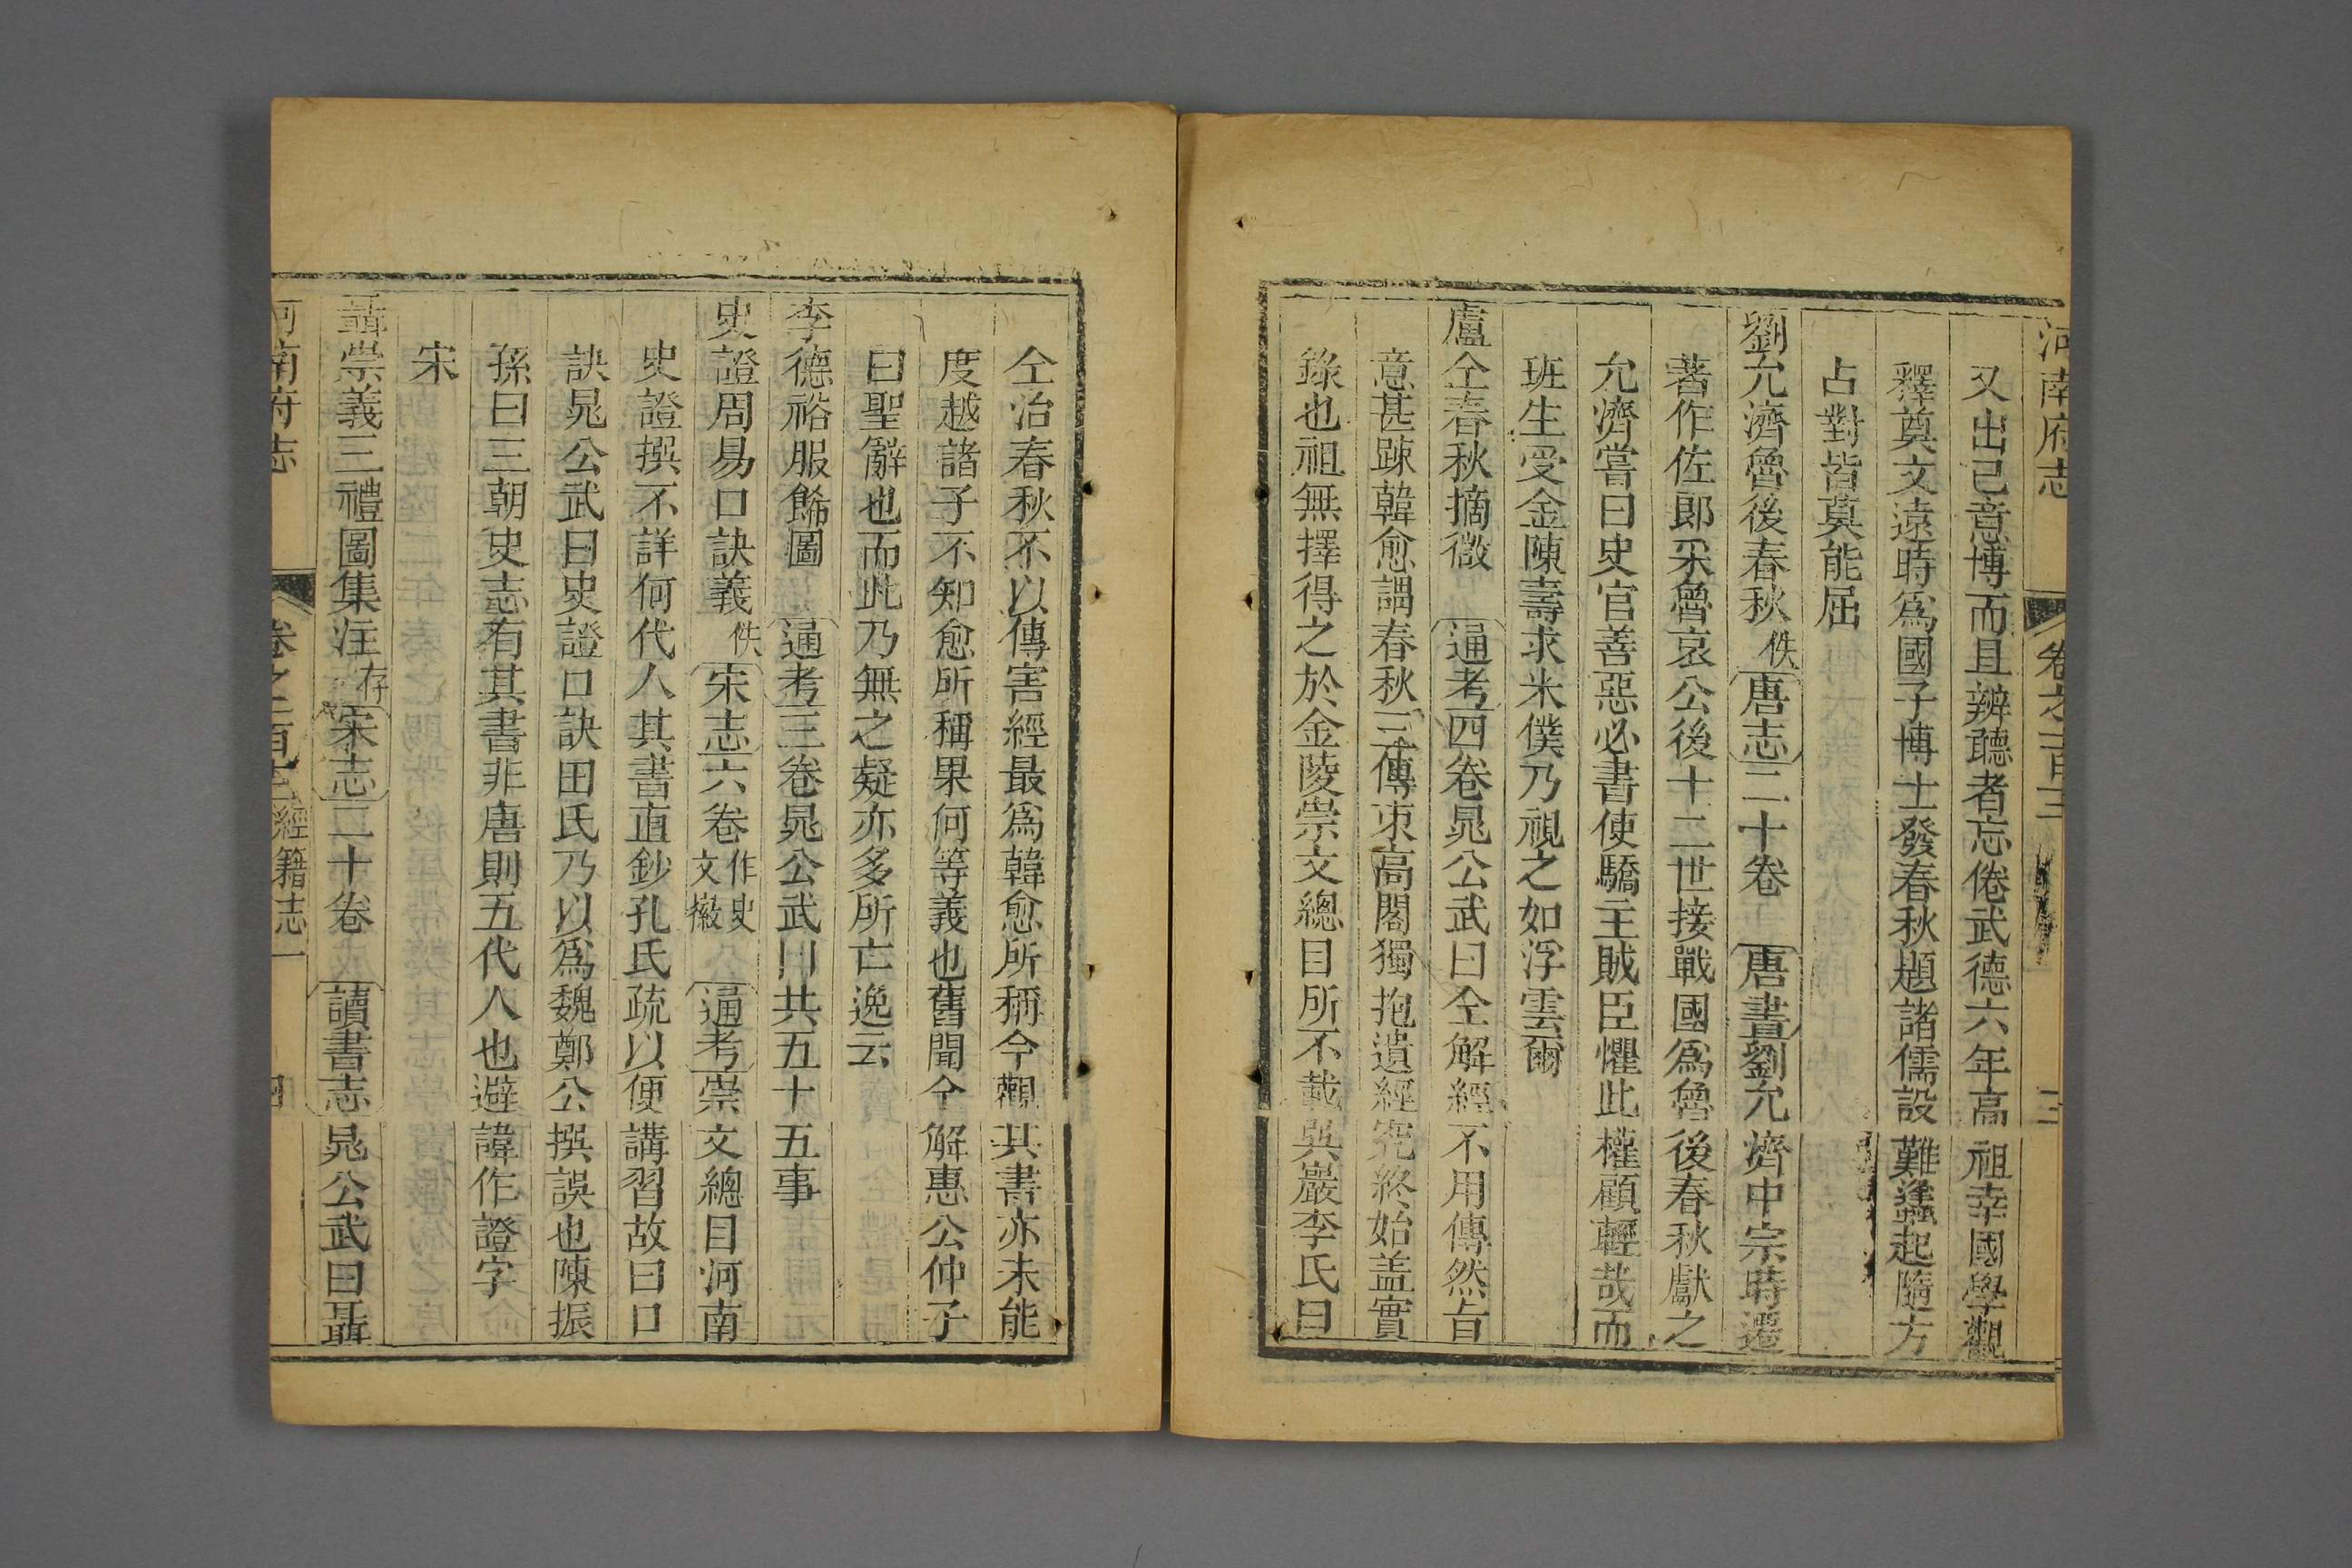 河南府志 卷之一百三 三
又出己意博而且辨聽者忘倦武德六年高祖幸國學觀
釋奠文遠時爲國子博士發春秋題諸儒設難蠭起隨方
占對皆莫能屈
劉允濟魯後春秋佚唐志二十卷 唐書劉允濟中宗時遷
著作佐郎采魯哀公後十二世接戰國爲魯後春秋獻之
允濟嘗曰史官善惡必書使驕主賊臣懼此權顧輕哉而
班生受金陳壽求米僕乃視之如浮雲爾
盧仝春秋摘微 通考四卷晁公武曰仝解經不用傳然旨
意甚踈韓愈謂春秋三傳束高閣獨抱遺經究終始盖實
錄也祖無擇得之於金陵崇文總目所不載巽巖李氏曰
仝治春秋不以傳害經最爲韓愈所稱今觀其書亦未能
度越諸子不知愈所稱果何等義也舊聞今解惠公仲子
曰聖辭也而此乃無之疑亦多所亡逸云
李德裕服餙圖 通考三卷晁公武曰共五十五事
史證周易口訣義佚宋志六卷作史文徽 通考崇文總目河南
史證撰不詳何代人其書直鈔孔氏疏以便講習故曰口
訣晁公武曰史證口訣田氏乃以爲魏鄭公撰誤也陳振
孫曰三朝史志有其書非唐則五代人也避諱作證字
宋
聶崇義三禮圖集注存宋志二十卷 讀書志晁公武曰聶
河南府志 卷之一百 經籍志一 四